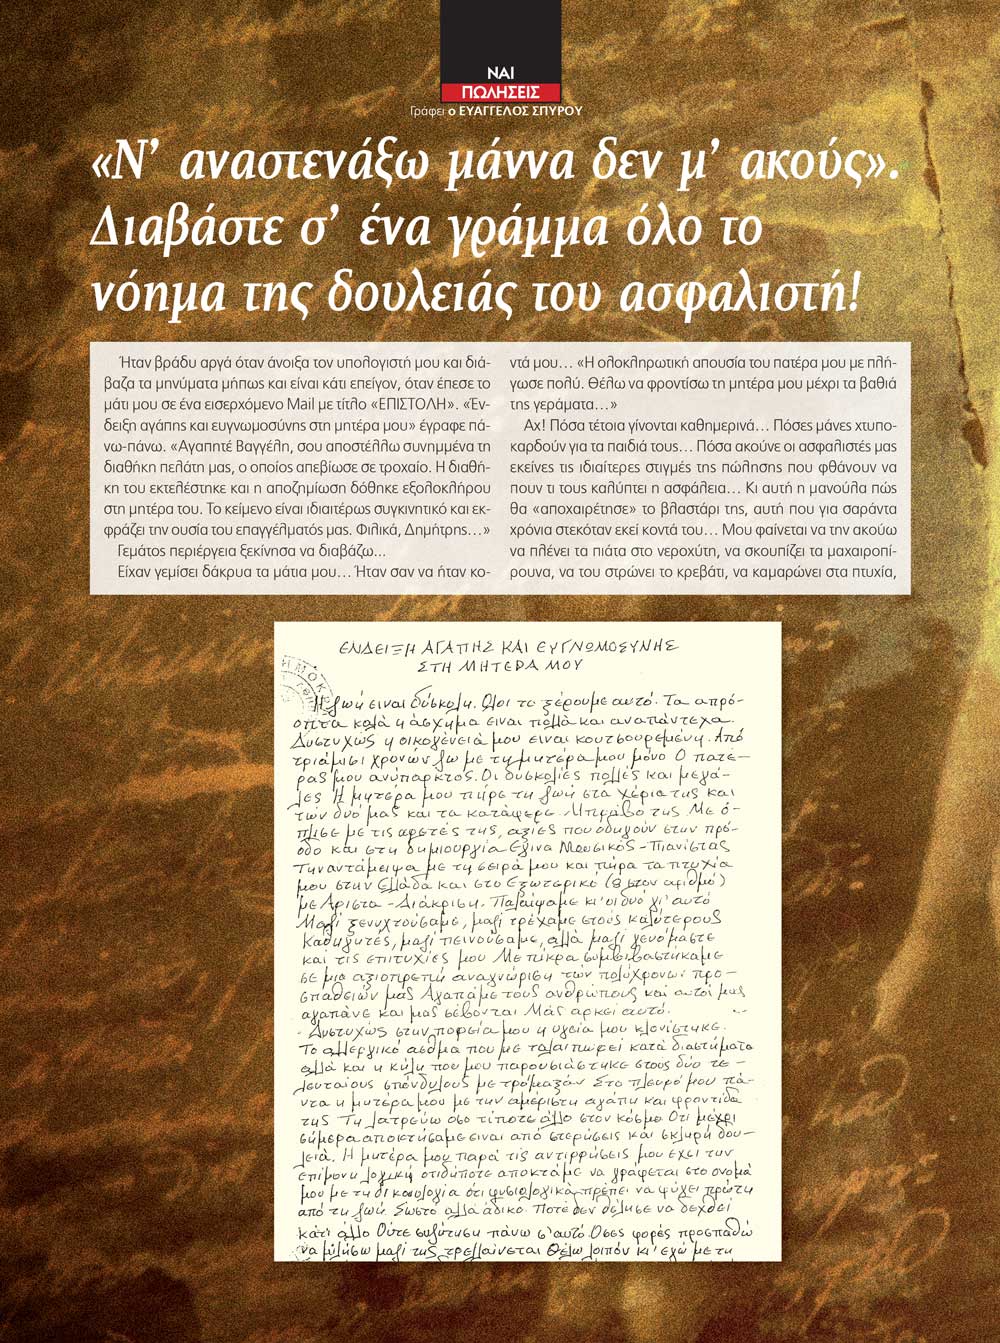 ΝΑΙ
ΠΩΛΗΣΕΙΣ
Γράφει ο ΕΥΑΓΓΕΛΟΣ ΣΠΥΡΟΥ
«Ν’ αναστενάξω μάννα δεν μ’ ακούς».
Διαβάστε σ’ ένα γράμμα όλο το
νόημα της δουλειάς του ασφαλιστή!
Ήταν βράδυ αργά όταν άνοιξα τον υπολογιστή μου και διά-
βαζα τα μηνύματα μήπως και είναι κάτι επείγον, όταν έπεσε το
μάτι μου σε ένα εισερχόμενο Mail με τίτλο «ΕΠΙΣΤΟΛΗ». «Έν-
δειξη αγάπης και ευγνωμοσύνης στη μητέρα μου» έγραφε πά-
νω-πάνω. «Αγαπητέ Βαγγέλη, σου αποστέλλω συνημμένα τη
διαθήκη πελάτη μας, ο οποίος απεβίωσε σε τροχαίο. Η διαθή-
κη του εκτελέστηκε και η αποζημίωση δόθηκε εξολοκλήρου
στη μητέρα του. Το κείμενο είναι ιδιαιτέρως συγκινητικό και εκ-
φράζει την ουσία του επαγγέλματός μας. Φιλικά, Δημήτρης...»
Γεμάτος περιέργεια ξεκίνησα να διαβάζω...
Είχαν γεμίσει δάκρυα τα μάτια μου... Ήταν σαν να ήταν κο-
ντά μου... «Η ολοκληρωτική απουσία του πατέρα μου με πλή-
γωσε πολύ. Θέλω να φροντίσω τη μητέρα μου μέχρι τα βαθιά
της γεράματα...»
Αχ! Πόσα τέτοια γίνονται καθημερινά... Πόσες μάνες χτυπο-
καρδούν για τα παιδιά τους... Πόσα ακούνε οι ασφαλιστές μας
εκείνες τις ιδιαίτερες στιγμές της πώλησης που φθάνουν να
πουν τι τους καλύπτει η ασφάλεια... Κι αυτή η μανούλα πώς
θα «αποχαιρέτησε» το βλαστάρι της, αυτή που για σαράντα
χρόνια στεκόταν εκεί κοντά του... Μου φαίνεται να την ακούω
να πλένει τα πιάτα στο νεροχύτη, να σκουπίζει τα μαχαιροπί-
ρουνα, να του στρώνει το κρεβάτι, να καμαρώνει στα πτυχία,
ΕΝΔΕΙΞΗ ΑΓΑΠΗΣ ΚΑΙ ΕΥΓΝΩΜΟΣΥΝΗΣ
ΣΤΗ ΜΗΤΕΡΑ ΜΟΥ
Η ζωή είναι δύσκολη. Όλοι το ξέρουμε αυτό. Τα απρό-
οπτα καλά ή άσχημα είναι πολλά και αναπάντεχα.
Δυστυχώς η οικογένειά μου είναι κουτσουρεμένη. Από
τριάμισι χρονών ζω με τη μητέρα μου μόνο Ο πατέ-
ρας μου ανύπαρκτος. Οι δυσκολίες πολλές και μεγά-
λες Η μητέρα μου πήρε τη ζωή στα χέρια της και
των δυό μας και τα κατάφερε. Μπράβο της Με ό-
πλισε με τις αρετές της, αξίες που οδηγούν στην πρό-
οδο και στη δημιουργία Έγινα Μουσικός - Πιανίστας
Την αντάμειψα με τη σειρά μου και πήρα τα πτυχία
μου στην Ελλάδα και στο Εξωτερικό (8 στον αριθμό)
με Άριστα - Διάκριση. Παλαίψαμε κι' οι δυό γι' αυτό
Μαζί ξενυχτούσαμε, μαζί τρέχαμε στους καλύτερους
Καθηγητές, μαζί πεινούσαμε, αλλά μαζί γευόμαστε
και τις επιτυχίες μου Με πίκρα συμβιβαστήκαμε
σε μια αξιοπρεπή αναγνώριση των πολύχρονων προ-
σπαθειών μας Αγαπάμε τους ανθρώπους και αυτοί μας
αγαπάνε και μας σέβονται Μάς αρκεί αυτό.
Δυστυχώς στην πορεία μου η υγεία μου κλονίστηκε.
Το αλλεργικό άσθμα που με ταλαιπωρεί κατά διαστήματα
αλλά και η κήλη που μου παρουσιάστηκε στους δύο τε-
λευταίους σπόνδυλους με τρόμαξαν Στο πλευρό μου πά-
ντα η μητέρα μου με την αμέριστη αγάπη και φροντίδα
της Τη λατρεύω όσο τίποτε άλλο στον κόσμο Ότι μέχρι
σήμερα αποκτήσαμε είναι από στερήσεις και σκληρή δου-
λειά. Η μητέρα μου παρά τις αντιρρήσεις μου έχει την
επίμονη λογική οτιδήποτε αποκτάμε να γράφεται στο όνομά
μου με τη δικαιολογία ότι φυσιολογικά πρέπει να φύγει πρώτη
από τη ζωή. Σωστό αλλά άδικο. Ποτέ δεν θέλησε να δεχθεί
κάτι άλλο Ούτε συζήτηση πάνω σ' αυτό Όσες φορές προσπαθώ
να μιλήσω μαζί της τρελλαίνεται Θέλω λοιπόν κι' εγώ με τη